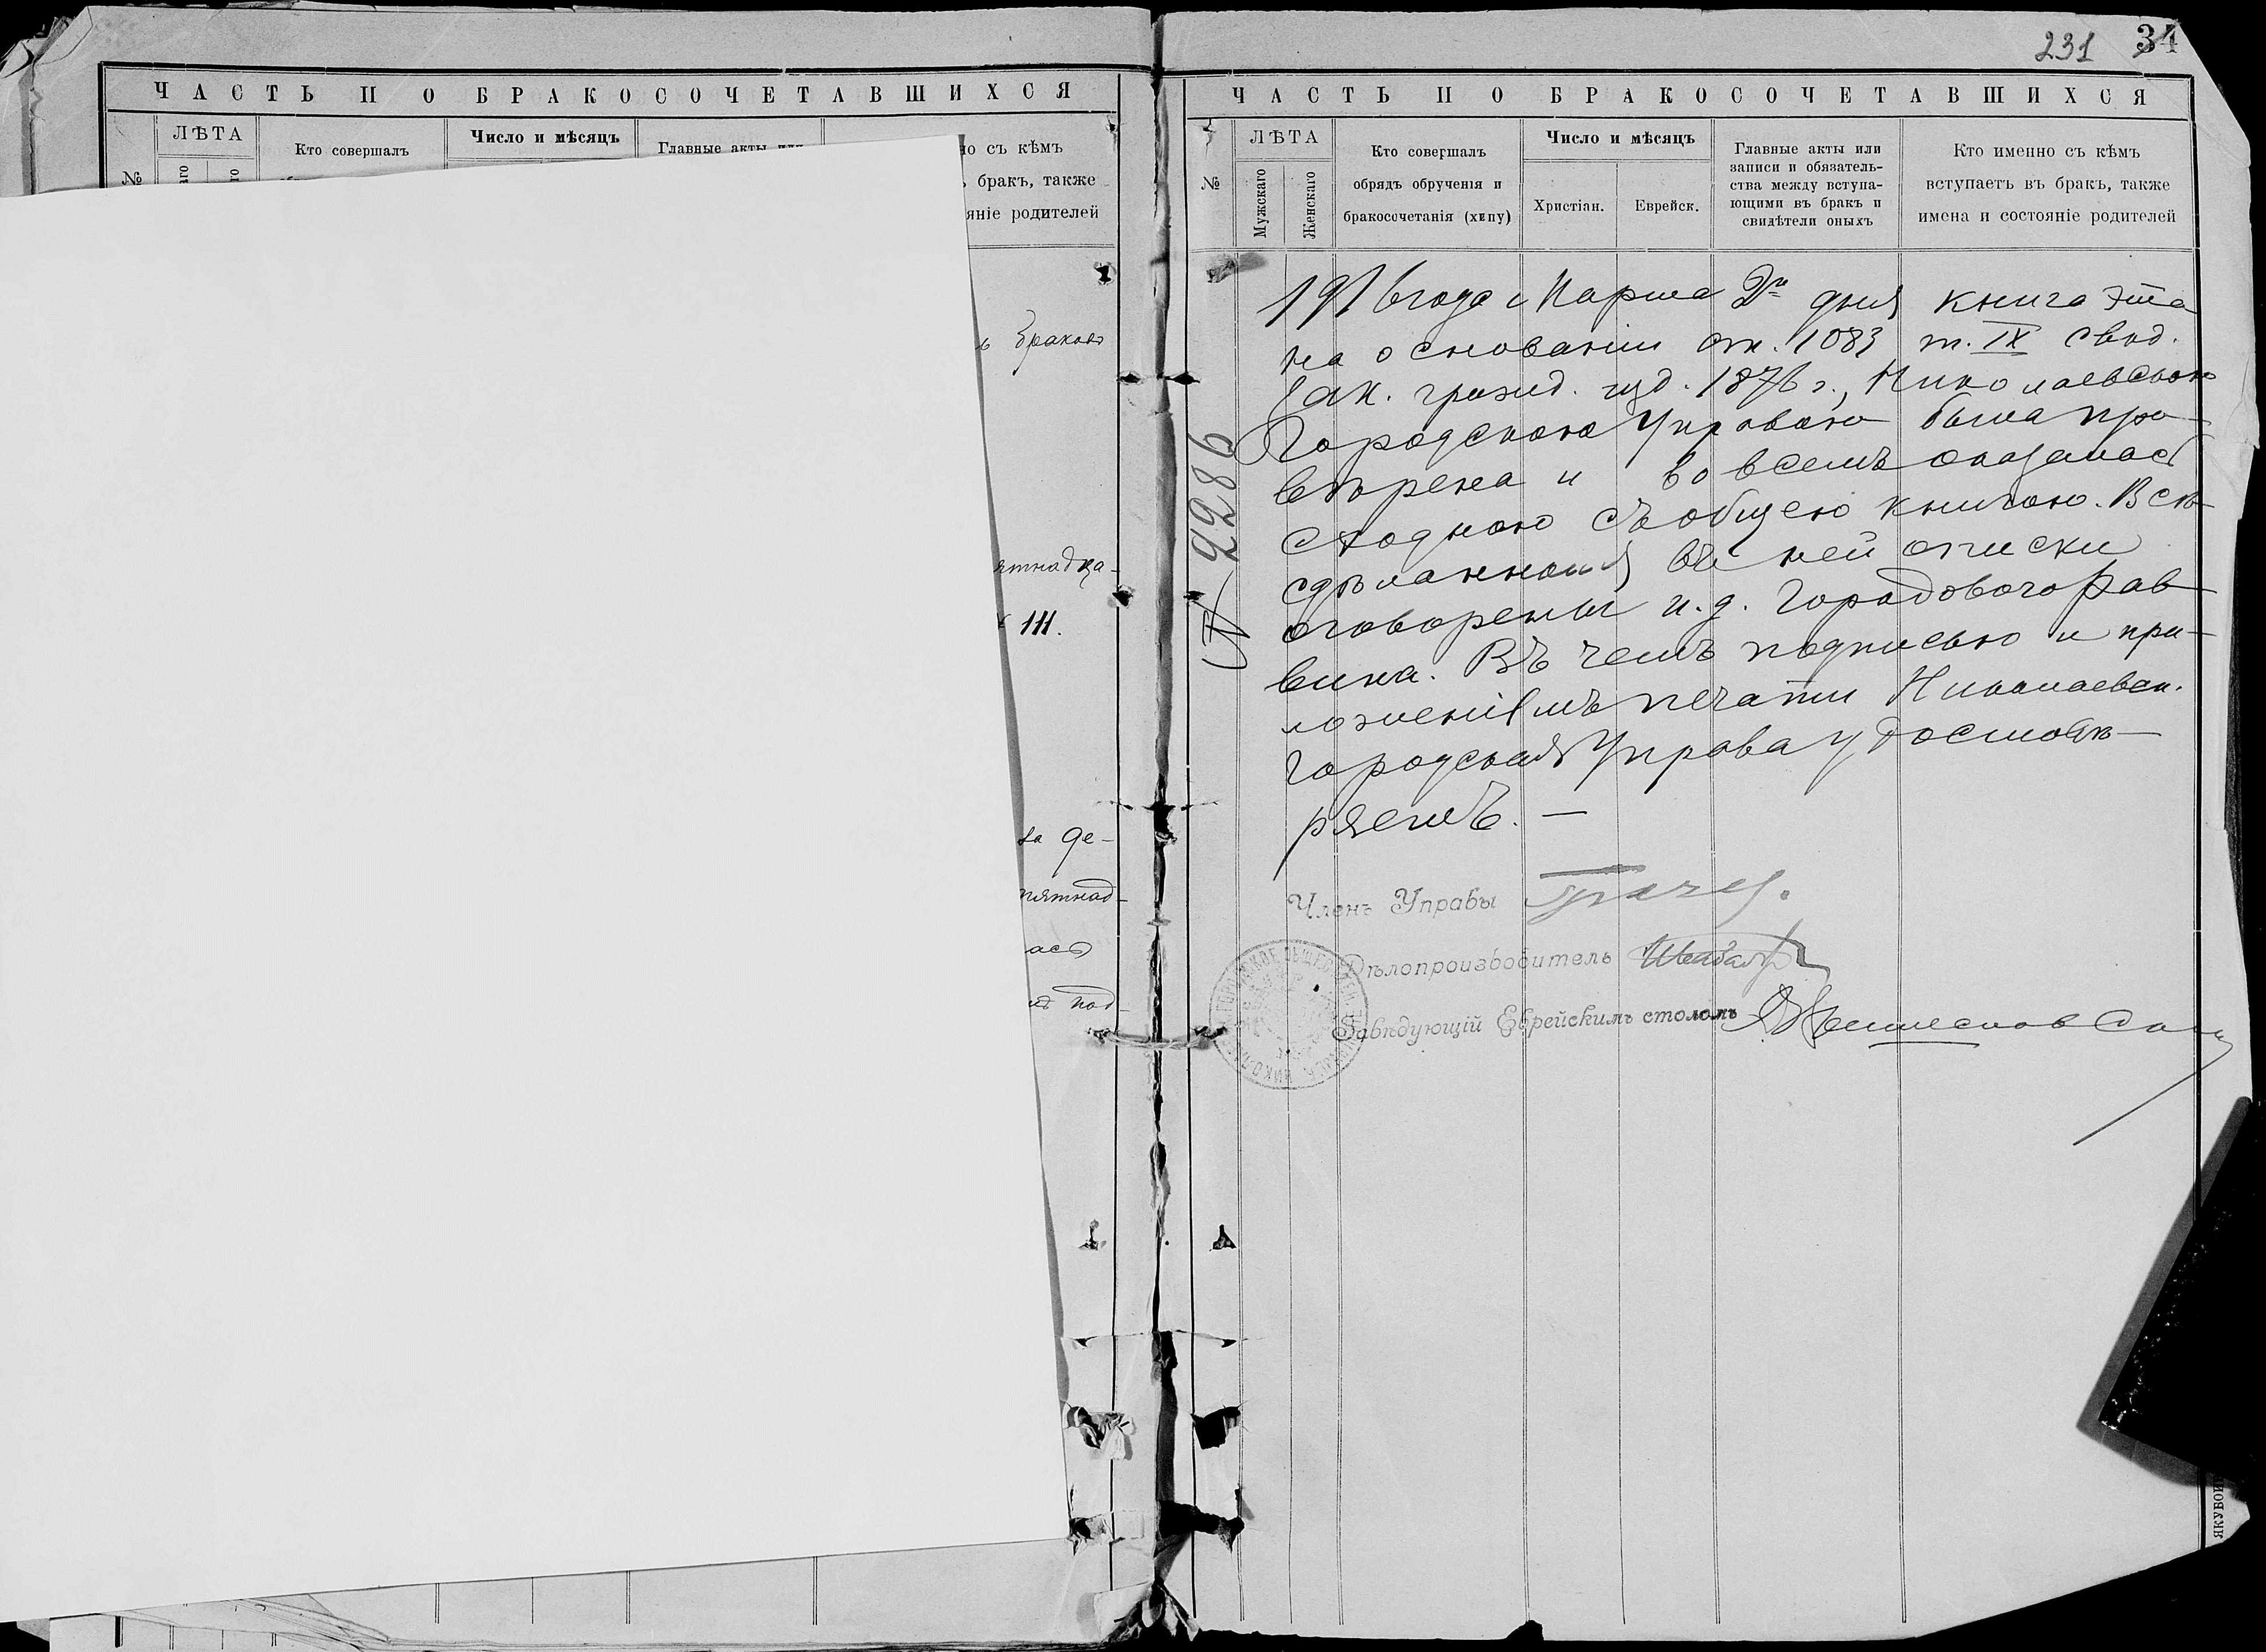 ЧАСТЬ II О БРАКОСОЧЕТАВШИХСЯ
№
ЛѢТА
Кто совершалъ
Число и мѣсяцъ
Главные акты или
но съ кѣмъ
ъ бракъ, также
яніе родителей
ъ браковъ
ятнадца-
111.
за де-
пятнад-
ась
под-
231 34
ЧАСТЬ II О БРАКОСОЧЕТАВШИХСЯ
№
ЛѢТА
Мужскаго
Женскаго
Кто совершалъ
обрядъ обрученія и
бракосочетанія (хепу)
Число и мѣсяцъ
Христіан.
Еврейск.
Главные акты или
записи и обязатель-
ства между вступа-
ющими въ бракъ и
свидѣтели оныхъ
Кто именно съ кѣмъ
вступаетъ въ бракъ, также
имена и состояніе родителей
№ 2286
1916 года Марта 2го дня книга эта
на основаніи ст. 1083 т. IX свод.
Зак. гражд. изд. 1876 г., Николаевскою
Городскою Управою была про-
вѣрена и во всемъ оказалась
сходною съ общею книгою. Всѣ
сдѣланныя въ ней описки
оговорены и.д. Городового Рав-
вина. Въ чемъ подписью и при-
ложеніемъ печати Николаевск.
Городская Управа удостовѣ-
ряетъ. —
Членъ Управы
Дѣлопроизводитель
Завѣдующій Еврейскимъ столомъ
ЯКУБОВ